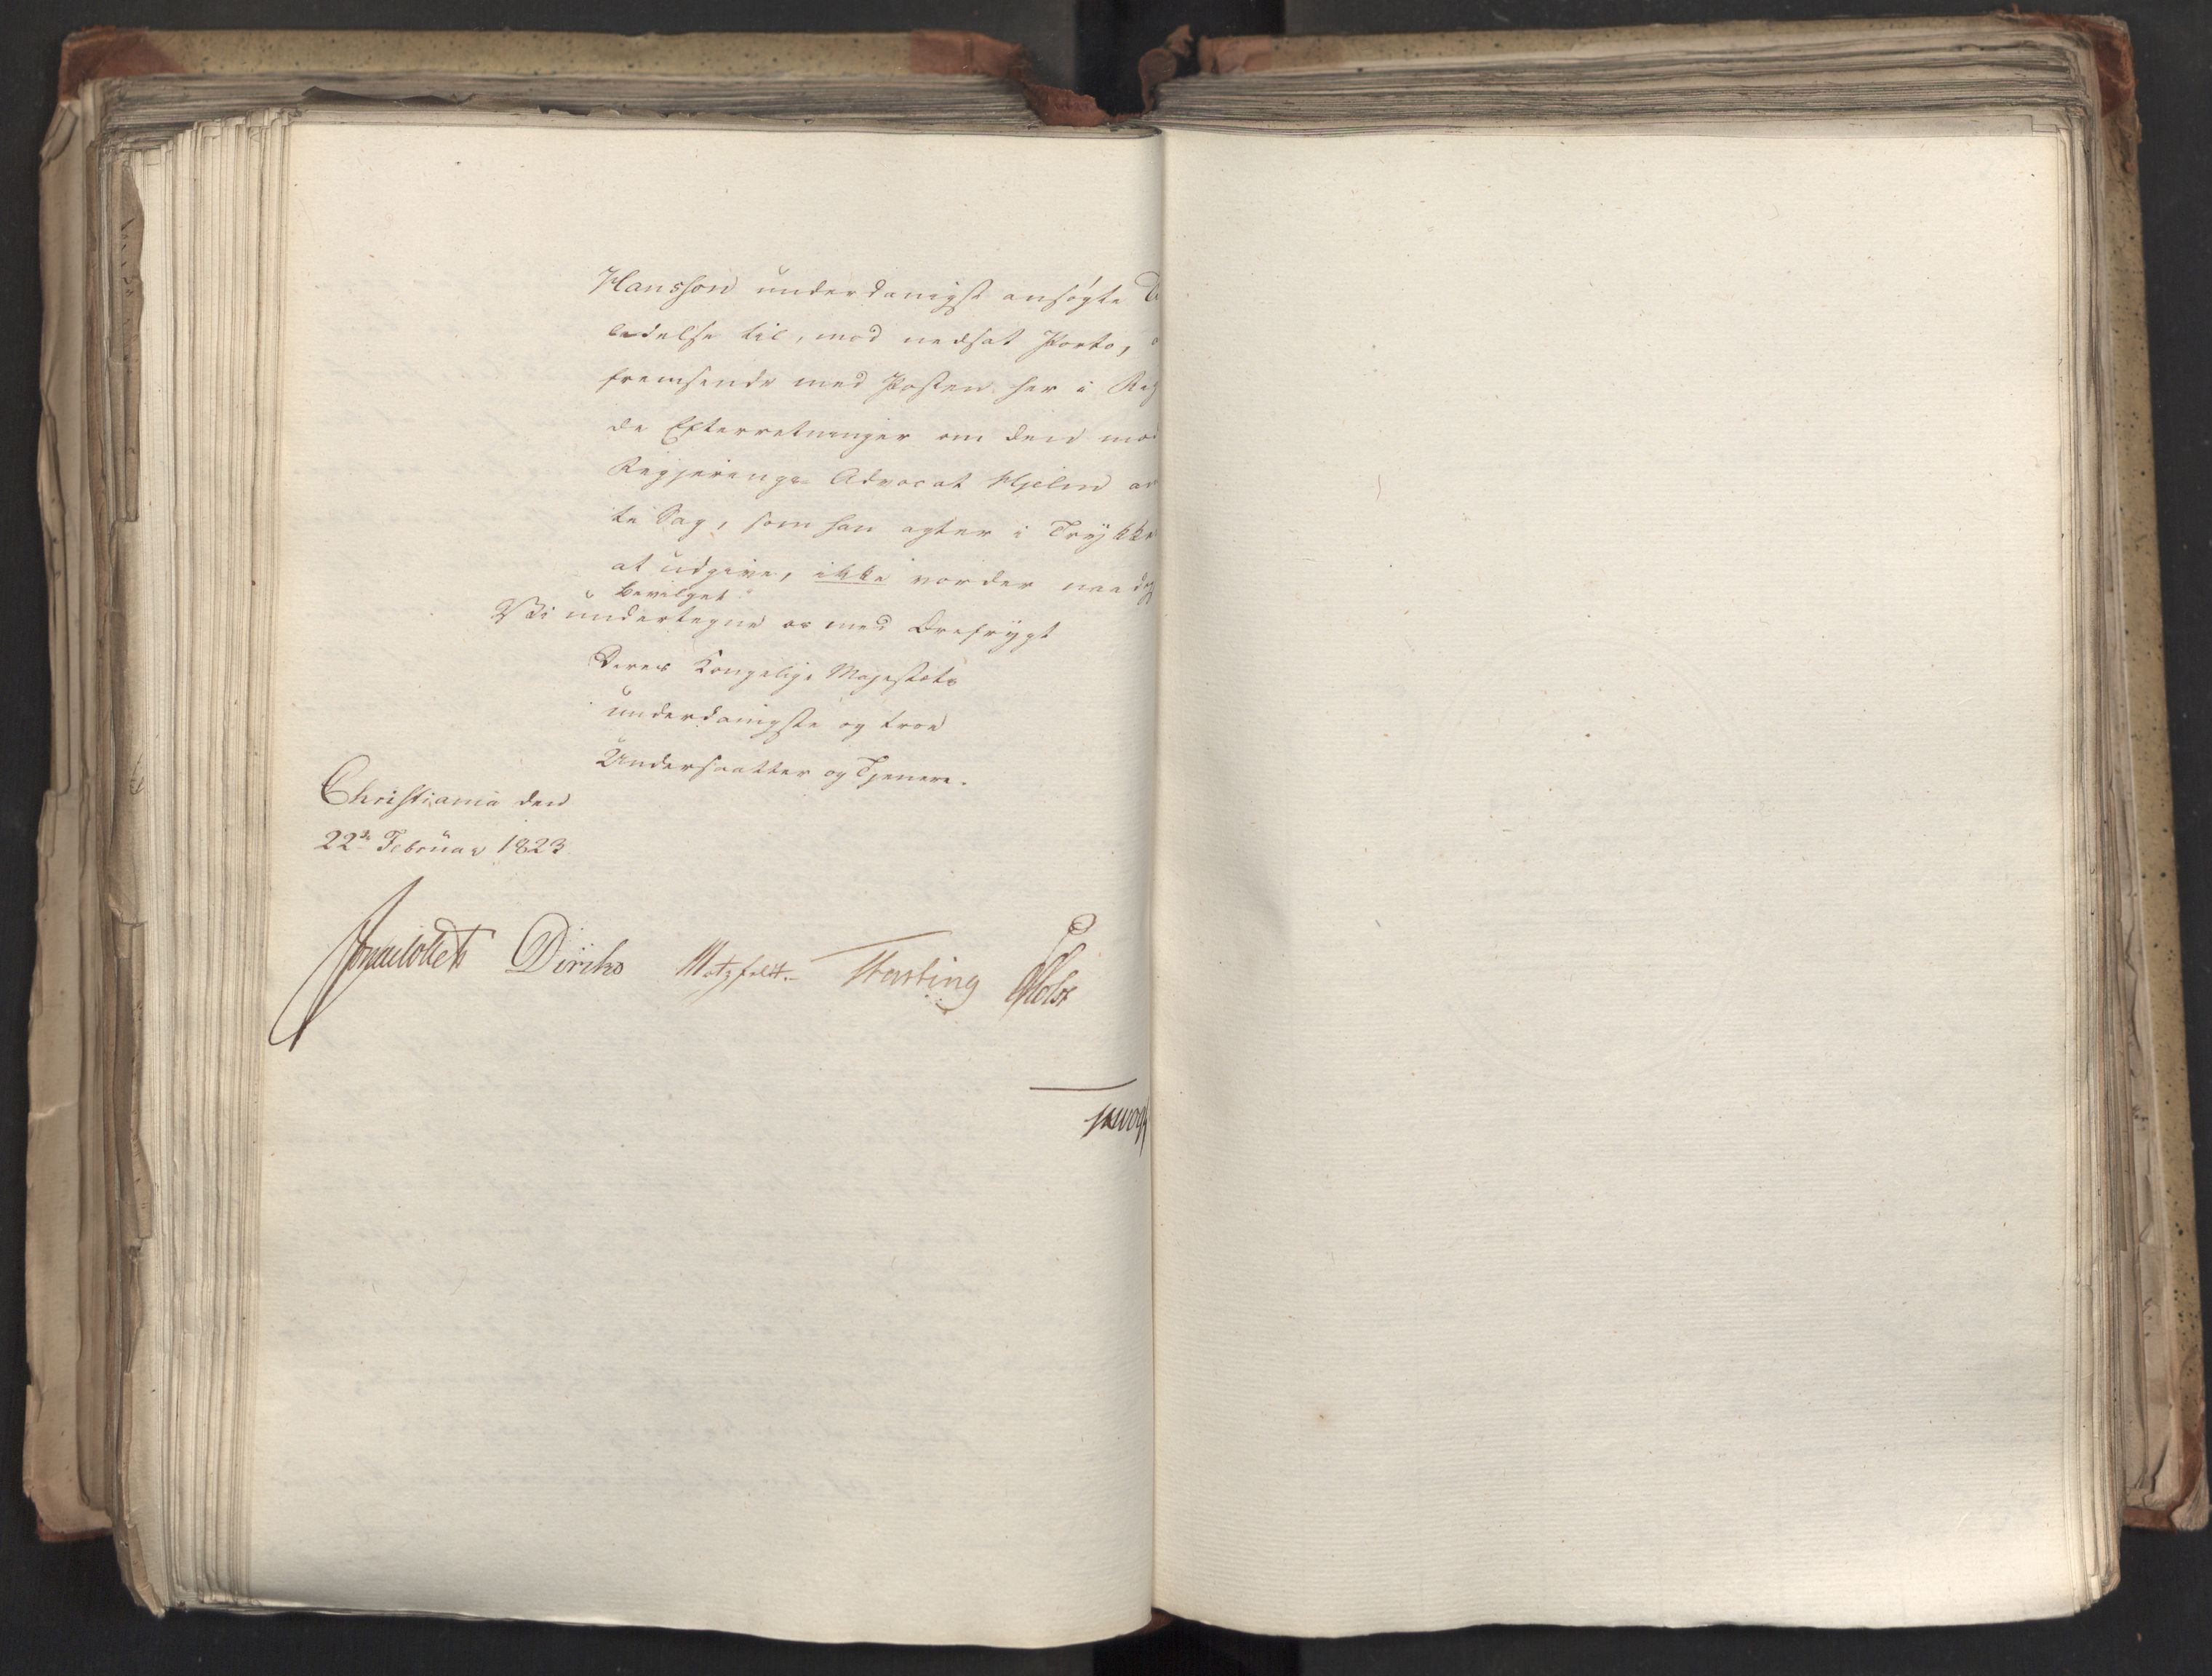 Hansson underdanigst ansøgte Ti
ladelse til, mod nedsat Porto, a
fremsende med Posten her i Rig
de Efterretninger om den mod
Regjerings Advocat Hjelm an
te Sag, som han agter i Trykke
at udgive, ikke vorder naadig
bevilget.
Vi undertegne os med Ærefrygt
Deres Kongelige Majestæts
underdanigste og troe
Undersaatter og Tjenere.
Christiania den
22de Februar 1823.
Jonas Collett Diriks Motzfeldt. Fasting Holst